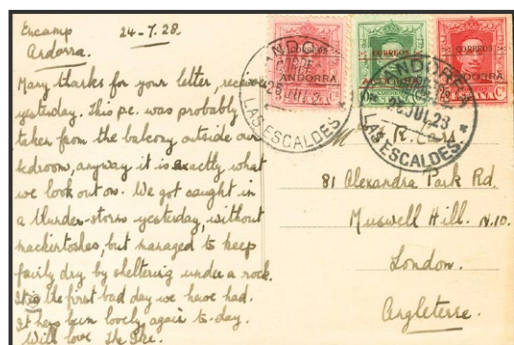 Encamp 24-7.28
Andorra.
Many thanks for your letter, received
yesterday. This p.c. was probably
taken from the balcony outside our
bedroom, anyway it is exactly what
we look out on. We got caught in
a thunder-storm yesterday, without
mackintoshes, but managed to keep
fairly dry by sheltering under a rock.
It is the first bad day we have had.
It has been lovely again to-day.
With love
CORREOS
ANDORRA
CORREOS
CORREOS
ANDORRA
ANDORRA
LAS ESCALDES
25 JUL 28
LAS ESCALDES
81 Alexandra Park Rd.
Muswell Hill. N.10.
London.
Angleterre.